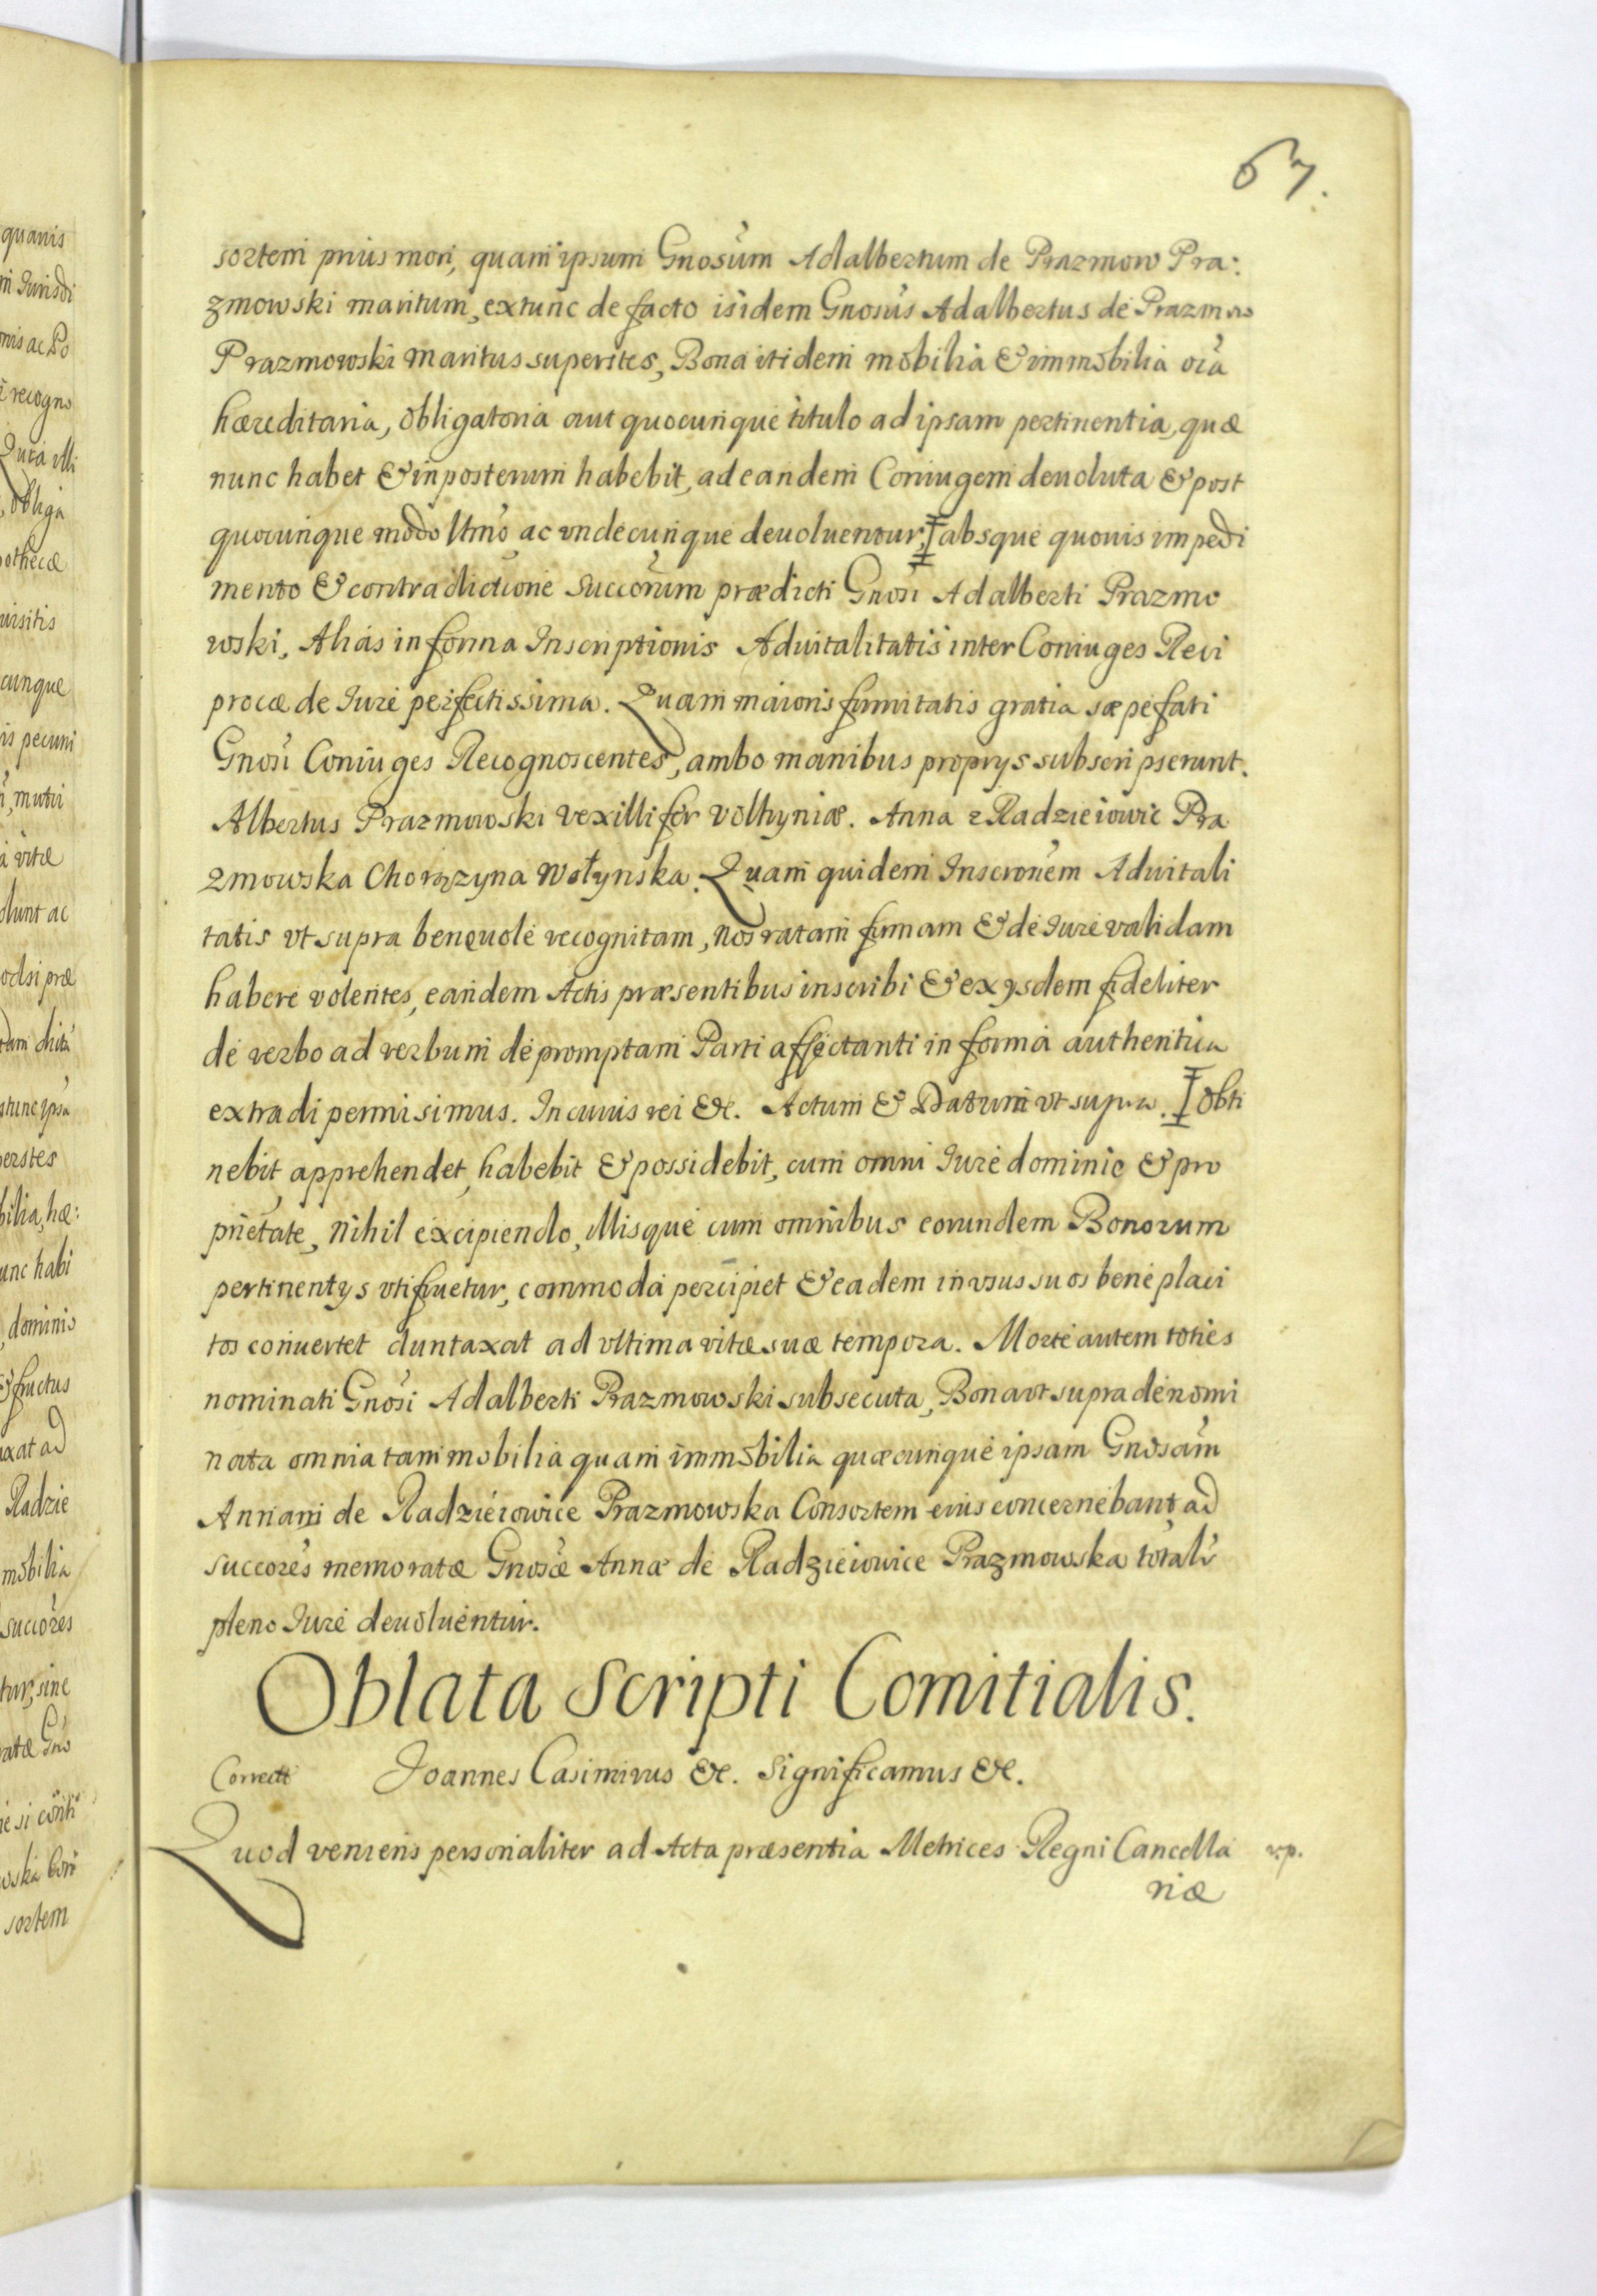 67.
sortem prius mori, quam ipsum Gnosum Adalbertum de Prazmow Pra:
zmowski maritum, extunc de facto isidem Gnosus Adalbertus de Prazmow
Prazmowski maritus superstes, Bona itidem mobilia & immobilia oia
hæreditaria, obligatoria aut quocunque titulo ad ipsam pertinentia, quæ
nunc habet & inposterum habebit, ad eandem Coniugem deuoluta & post
quocunque modo ltmo ac vndecunque deuoluentur, absque quouis impedi
mento & contradictione succorum prædicti Gnosi Adalberti Prazmo
wski, Alias in forma Inscriptionis Aduitalitatis inter Coniuges Reci
procæ de Iure perfectissima. Quam maioris firmitatis gratia sæpefati
Gnosi Coniuges Recognoscentes, ambo manibus proprys subscripserunt.
Albertus Prazmowski vexillifer Volhyniæ. Anna z Radzieiowic Pra
zmowska Chorązyna Wołynska. Quam quidem Inscronem Aduitali
tatis vt supra beneuole recognitam, nos ratam firmam & de Iure validam
habere volentes, eandem Actis præsentibus inscribi & ex ysdem fideliter
de verbo ad verbum depromptam Parti affectanti in forma authentica
extradi permisimus. In cuius rei &c. Actum & Datum vt supra. obti
nebit, apprehendet, habebit & possidebit, cum omni Iure dominio & pro
prietate, nihil excipiendo, illisque cum omnibus eorundem Bonorum
pertinentys vtifruetur, commoda percipiet & eadem in vsus suos beneplaci
tos conuertet duntaxat ad vltima vitæ suæ tempora. Morte autem toties
nominati Gnosi Adalberti Prazmowski subsecuta, Bona vt supra denomi
nata omnia tam mobilia quam immobilia quæcunque ipsam Gnosam
Annam de Radzieiowice Prazmowska Consortem eius concernebant, ad
succores memoratæ Gnosæ Annæ de Radzieiowice Prazmowska totalr
pleno Iure deuoluentur.
Oblata Scripti Comitialis.
Correctt Joannes Casimirus &c. Significamus &c.
Quod veniens personaliter ad Acta præsentia Metrices Regni Cancella vp.
riæ